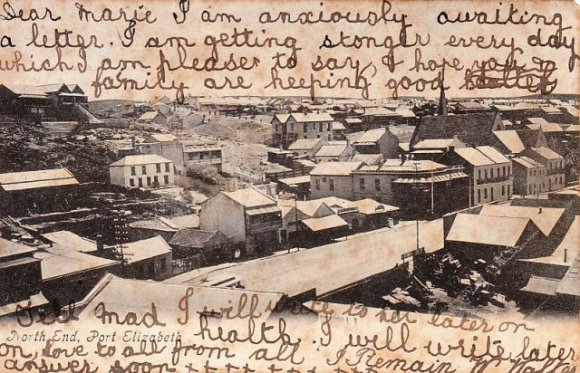 Dear Marie I am anxiously awaiting
a letter. I am getting stonger every day
which I am pleaser to say, I hope you n
family are keeping good
Tell Mad I will to her later on
North End, Port Elizabeth
health. I will write later
on, love to all from all I Remain W. Walter
answer soon + + + + + + + +